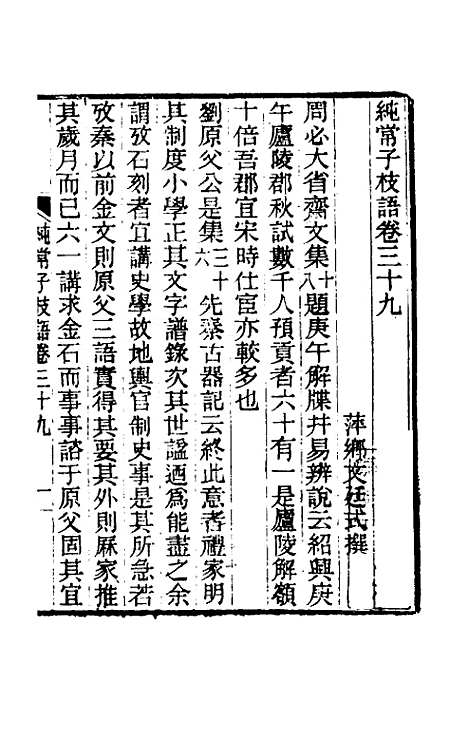 純常子枝語卷三十九
萍鄉文廷式撰
周必大省齋文集十八題庚午解牒幷易辨說云紹興庚
午廬陵郡秋試數千人預貢者六十有一是廬陵解額
十倍吾郡宜宋時仕宦亦較多也
劉原父公是集三十六先秦古器記云終此意者禮家明
其制度小學正其文字譜錄次其世謚迺爲能盡之余
謂攷石刻者宜講史學故地輿官制史事是其所急若
攷秦以前金文則原父三語實得其要其外則厤家推
其歲月而已六一講求金石而事事諮于原父固其宜
純常子枝語卷三十九
一